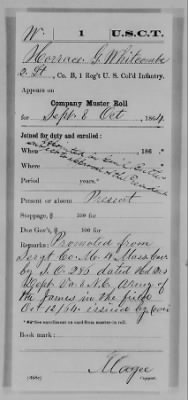 W | 1 | U.S.C.T.
Horrace G. Whitcombe
2. Lt, Co. B, 1 Reg't U. S. Col'd Infantry.
Appears on
Company Muster Roll
for Sept. & Oct, 1864.
Joined for duty and enrolled:
When 186 .*
Where
Period years.*
Present or absent Present
Stoppage, $ 100 for
Due Gov't, $ 100 for
Remarks: Promoted from
Sergt Co. M. 4 Mass Cav
by S.O. 286 dated Hd Qrs
Dept Va & N.C. Army of
the James in the field
Oct 12/64 issued by
Book mark:
Copyist.